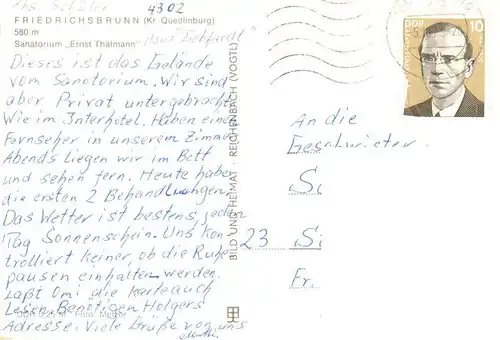 Abs. Schüler
4302
FRIEDRICHSBRUNN (Kr. Quedlinburg)
580 m
Sanatorium „Ernst Thälmann"
Haus
Dieses ist das Gelände
vom Sanatorium. Wir sind
aber Privat untergebracht
Wie im Interhotel. Haben einen
Fernseher in unserem Zimmer
Abends liegen wir im Bett
und sehen fern. Heute haben
die ersten 2 Behandlungen.
Das Wetter ist bestens, jeden
Tag Sonnenschein. Uns kon
trolliert keiner, ob die Ruhe
pausen einhalten werden.
Laßt Omi die Karte auch
Lesen. Benötigen Holgers
Adresse. Viele Grüße von uns
BILD UND HEIMAT REICHENBACH (VOGTL)
DDR
10
An die
Geschwister
Si
23 Si
Fr.